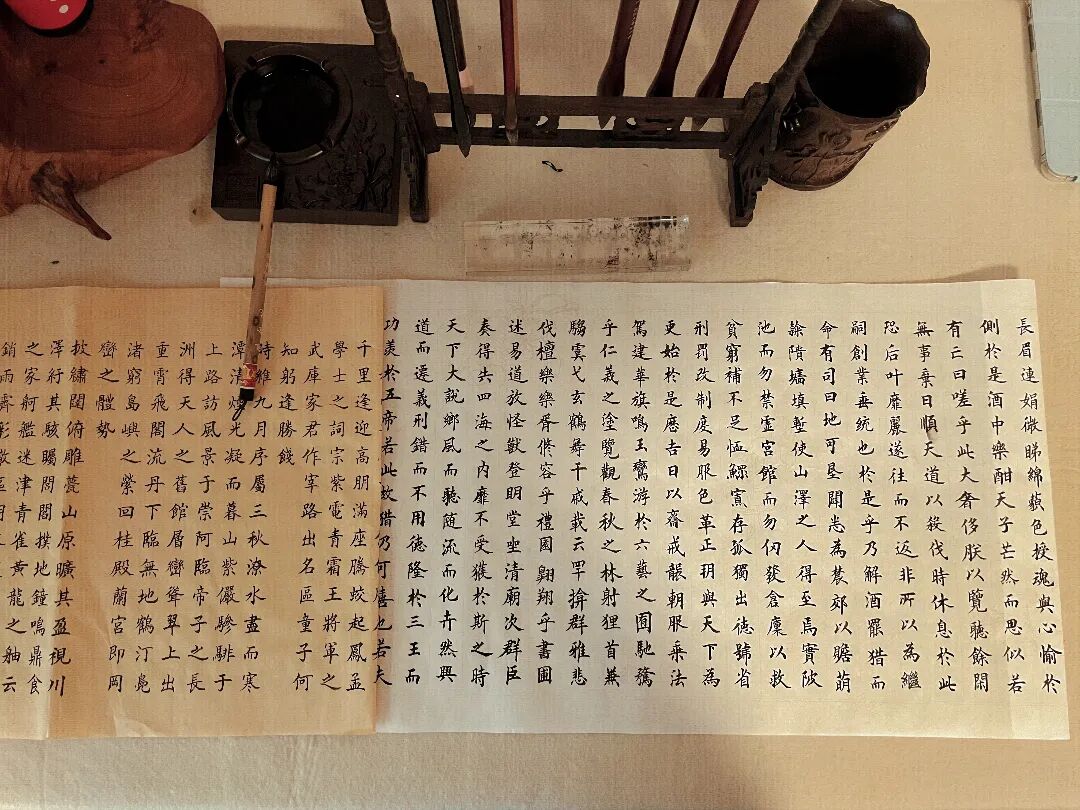 長眉連娟微睇綿藐色授魂與心愉於
側於是酒中樂酣天子芒然而思似若
有亡曰嗟乎此大奢侈朕以覽聽餘閒
無事棄日順天道以殺伐時休息於此
恐后叶靡麗遂往而不返非所以為繼
嗣創業垂統也於是乎乃解酒罷猎而
命有司曰地可垦闢悉為農郊以贍萌
隸隤墻填塹使山澤之人得至焉實陂
池而勿禁虛宮館而勿仞發倉廩以救
貧窮補不足恤鰥寡存孤獨出德號省
刑罰改制度易服色革正玥與天下為
更始於是應吉日以齋戒襲朝服乘法
駕建華旗鳴玉鸞游於六藝之囿馳騖
乎仁義之塗覽觀春秋之林射狸首兼
騶虞弋玄鶴舞干戚載云罕揜群雅悲
伐檀樂樂胥脩容乎禮園翺翔乎書圃
述易道放怪獸登明堂坐清廟次群臣
奏得失四海之內靡不受獲於斯之時
天下大說鄉風而聽随流而化卉然興
道而遷義刑錯而不用德隆於三王而
功羡於五帝若此故猎乃可喜也若夫
千里逢迎高朋滿座騰蛟起鳳孟
學士之詞宗紫電青霜王將軍之
武庫家君作宰路出名區童子何
知躬逢勝餞
時維九月序屬三秋潦水盡而寒
潭清煙光凝而暮山紫儼驂騑于
上路訪風景于崇阿臨帝子之長
洲得天人之舊館層巒聳翠上出
重霄飛閣流丹下臨無地鶴汀鳧
渚窮島嶼之縈回桂殿蘭宮即岡
巒之體勢
披繡闥俯雕甍山原曠其盈視川
澤行其駭矚閭閻撲地鐘鳴鼎食
之家舸艦迷津青雀黃龍之舳云
銷雨霽彩